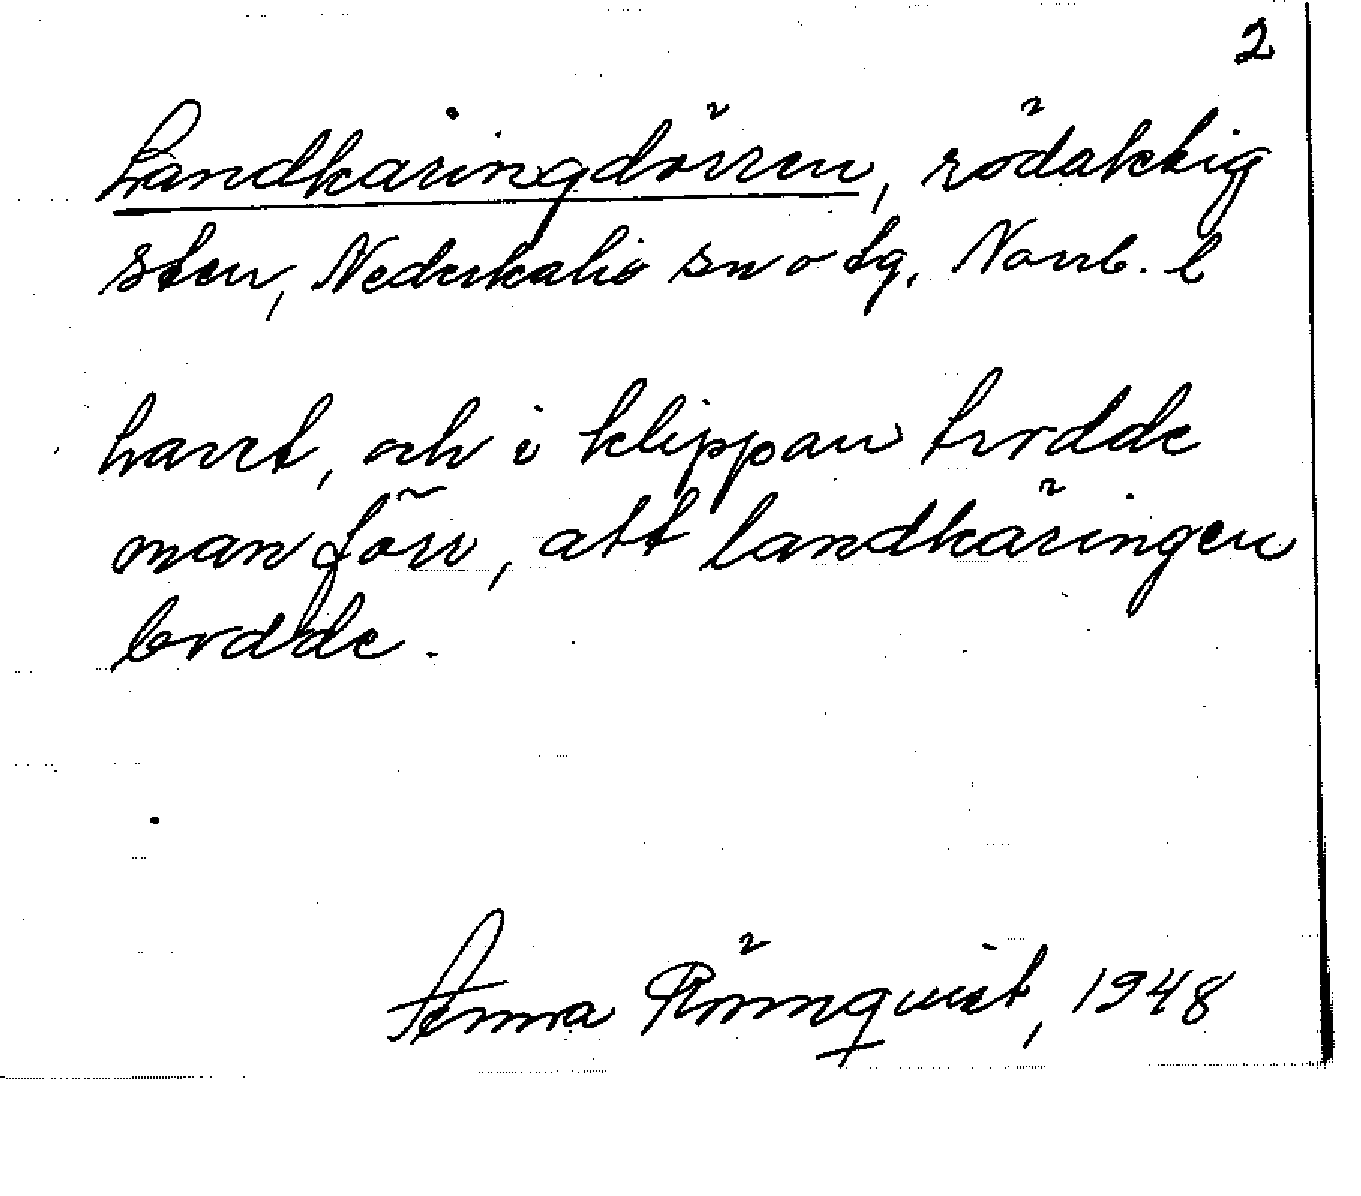 2
Landkäringdörren, rödaktig
sten, Nederkalix sn o tg, Norrb. l
havet, och i klippan trodde
man förr, att landkäringen
bodde.
Anna Rönnqvist, 1948